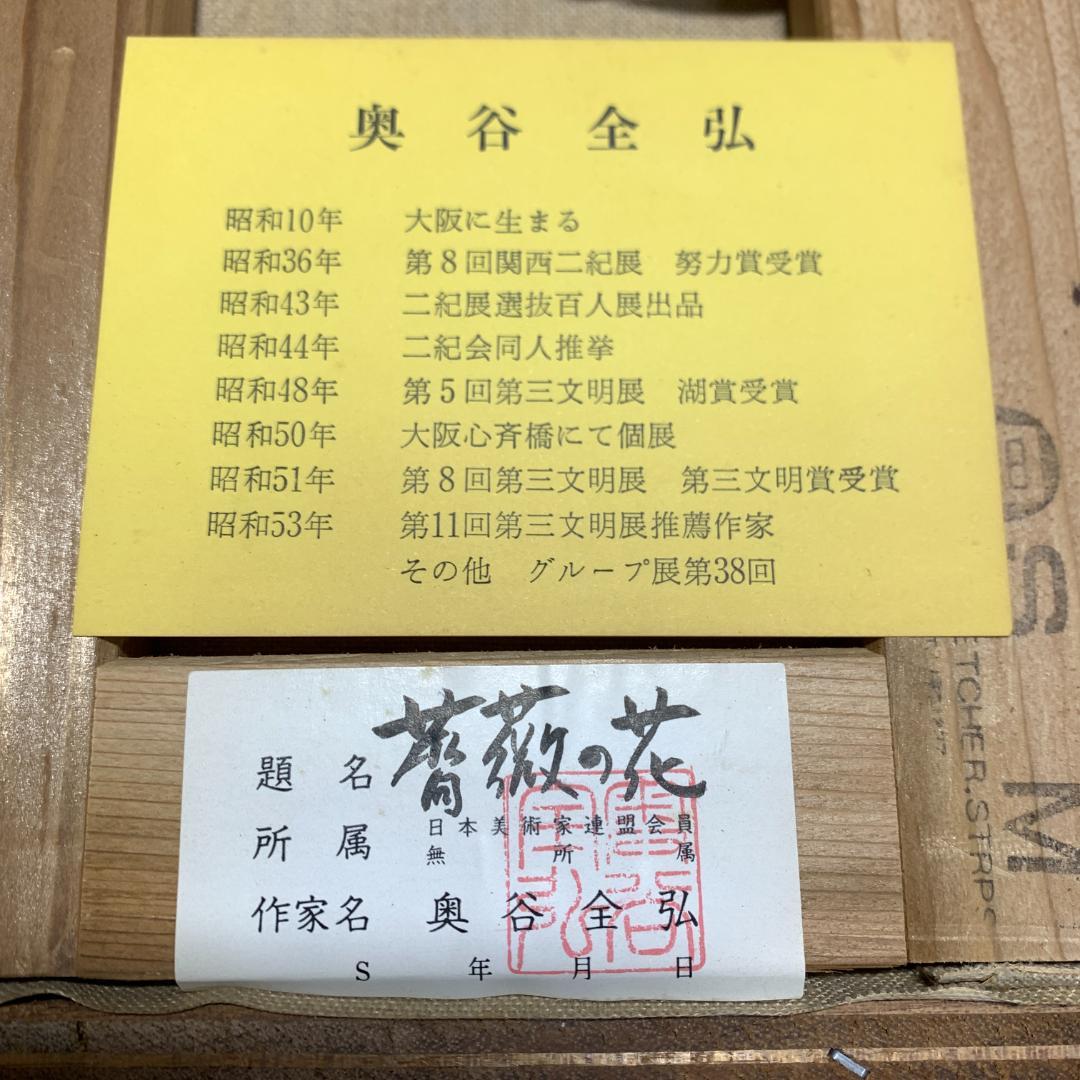 奥谷全弘
昭和10年 大阪に生まる
昭和36年 第8回関西二紀展 努力賞受賞
昭和43年 二紀展選抜百人展出品
昭和44年 二紀会同人推挙
昭和48年 第5回第三文明展 湖賞受賞
昭和50年 大阪心斉橋にて個展
昭和51年 第8回第三文明展 第三文明賞受賞
昭和53年 第11回第三文明展推薦作家
その他 グループ展第38回
題名 薔薇の花
所属 日本美術家連盟会員
無所属
作家名 奥谷全弘
S 年 月 日
奥谷全弘
S
M